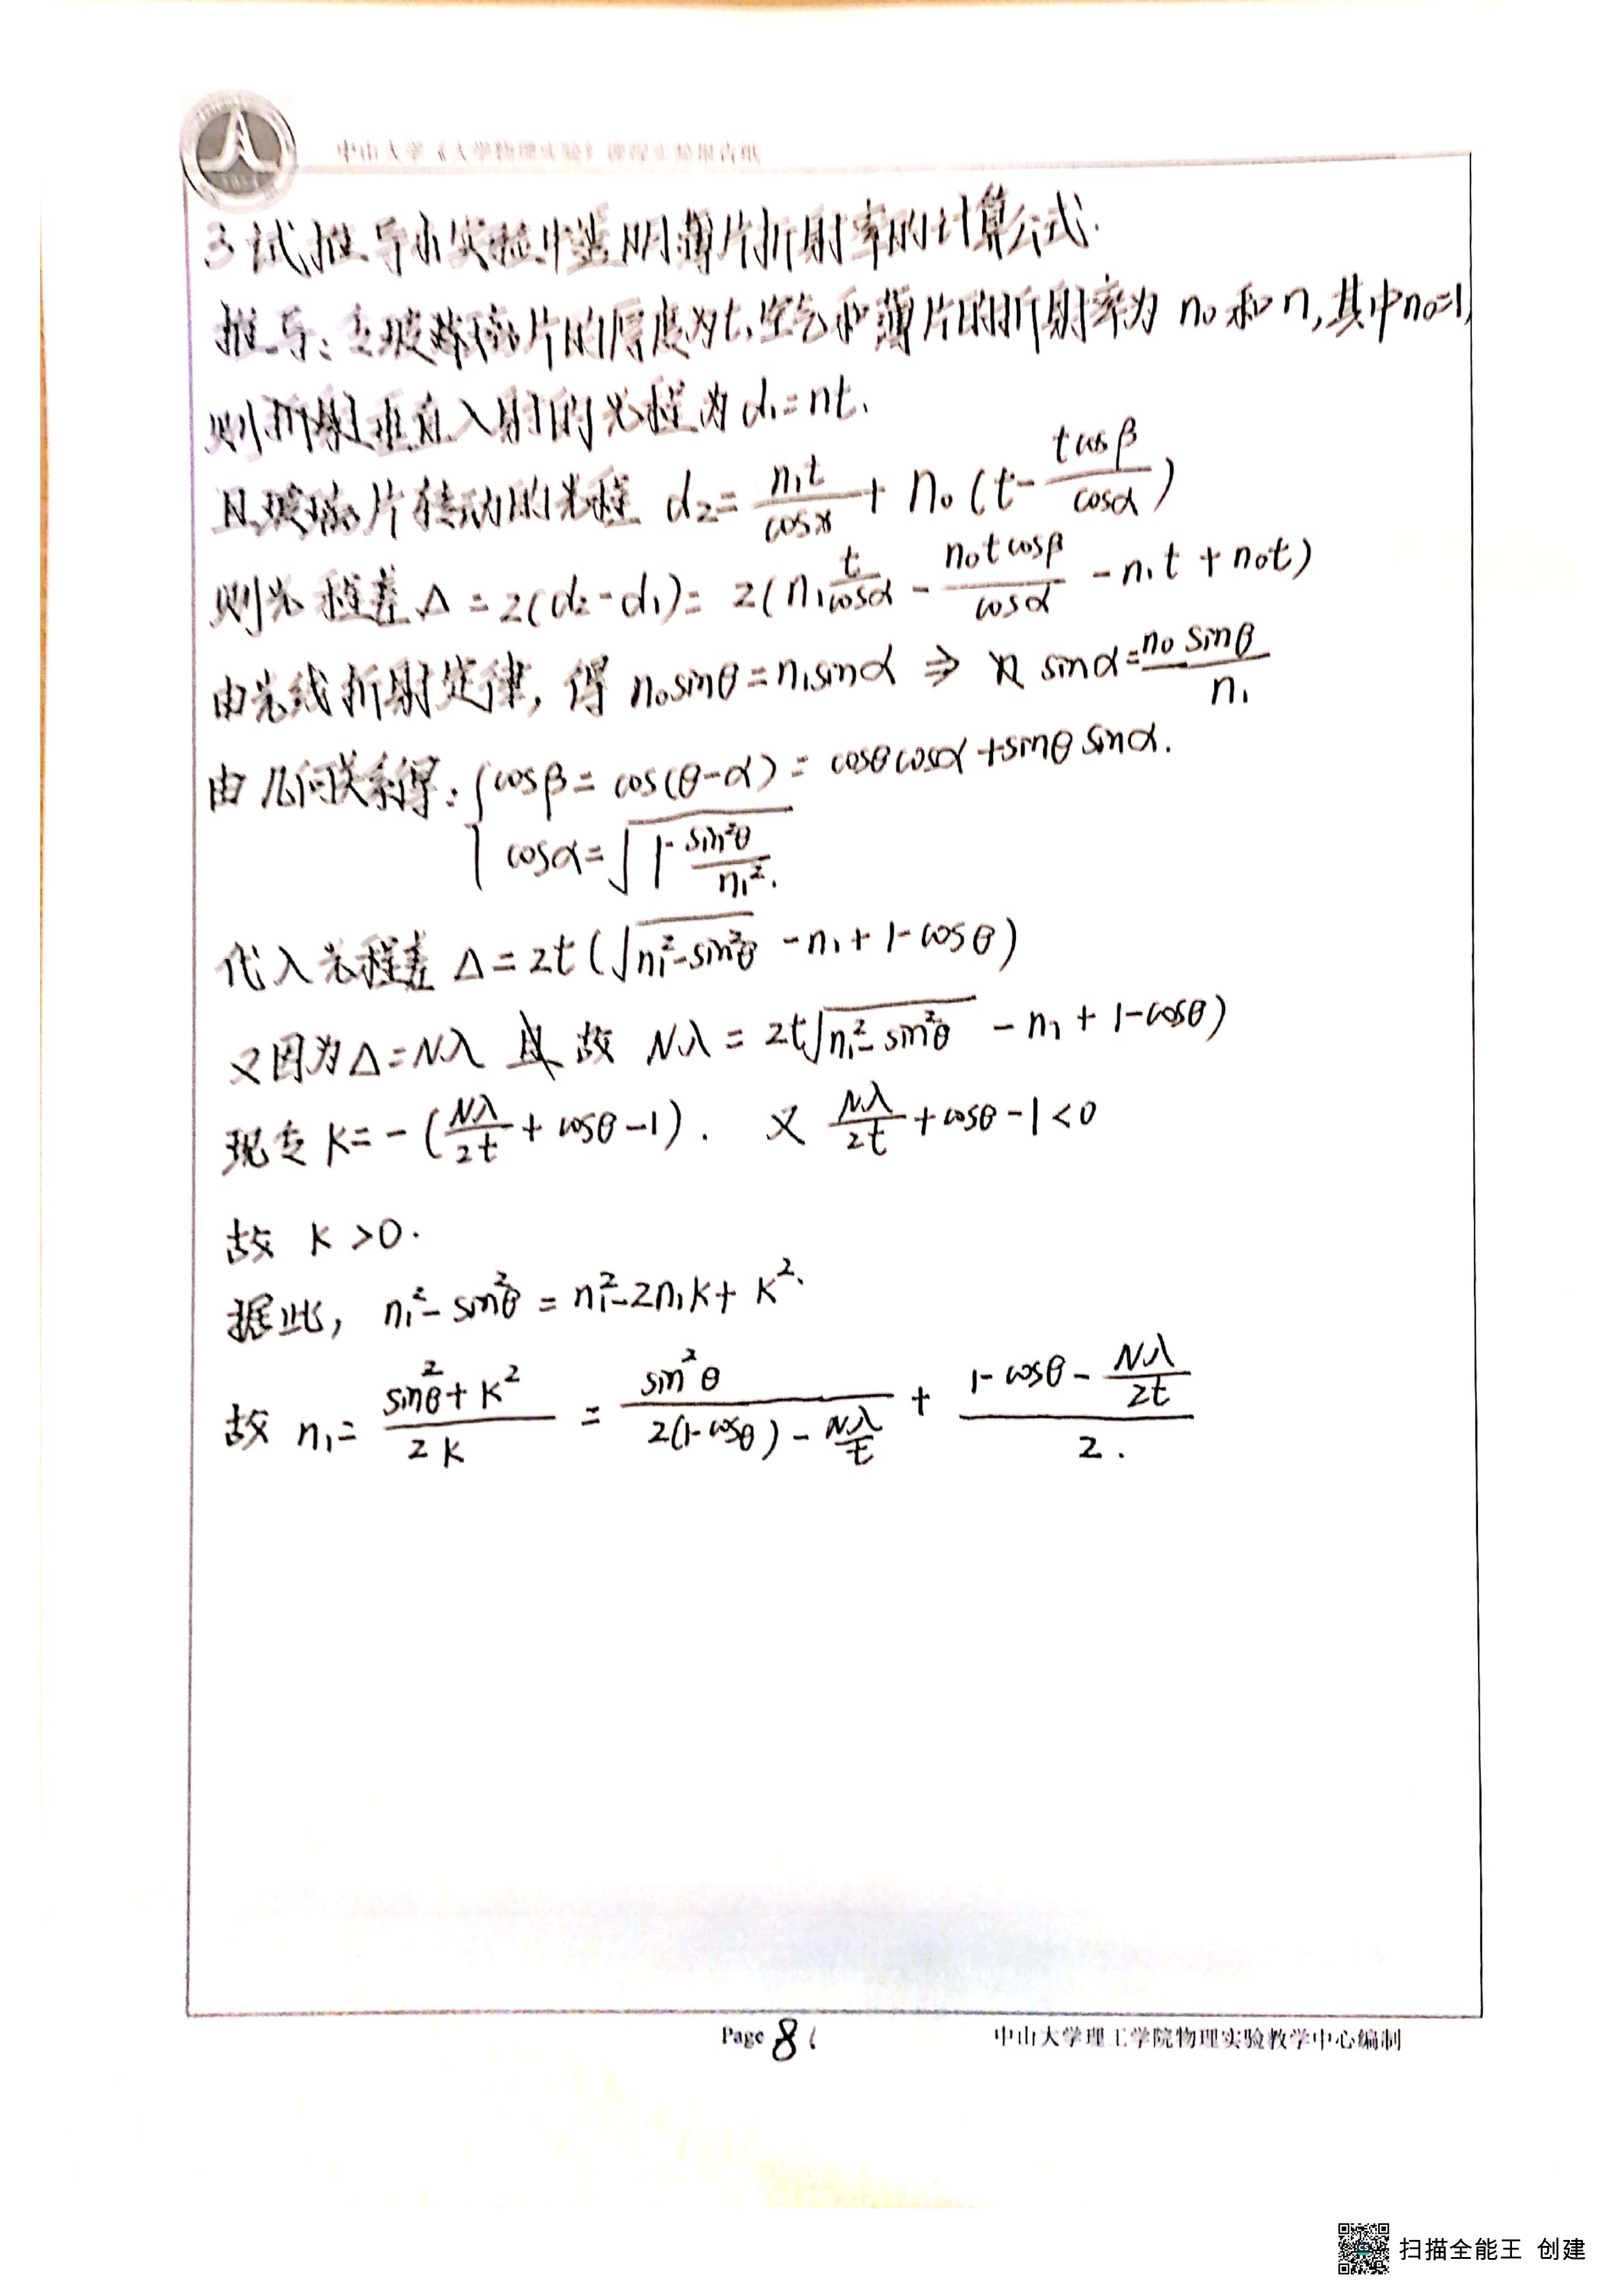 中山大学《大学物理实验》
3 试推导本实验中透明薄片折射率的计算公式.
推导：令玻璃薄片的厚度为t,空气和薄片的折射率为 n₀ 和 n,其中n₀=1,
则垂直入射的光程为 d₁=nt.
且玻璃片转动的光程 d₂= n₁t/cosα + n₀(t- tcosβ/cosα)
则光程差 Δ = 2(d₂-d₁)= 2(n₁ t/cosα - n₀tcosβ/cosα - n₁t + n₀t)
由光线折射定律, 得 n₀sinθ=n₁sinα ⇒ sinα= n₀ sinβ/n₁
由几何关系得: { cosβ = cos(θ-α) = cosθcosα+sinθsinα.
cosα=√(1- sin²θ/n₁²).
代入光程差 Δ=2t(√(n₁²-sin²θ) -n₁+1-cosθ)
又因为Δ=Nλ 故 Nλ = 2t√(n₁²-sin²θ) -n₁+1-cosθ)
现令 K=-(Nλ/2t + cosθ-1). 又 Nλ/2t +cosθ-1<0
故 K>0.
据此, n₁²-sin²θ = n₁²-2n₁K+K².
故 n₁= (sin²θ+K²)/2K = sin²θ/(2(1-cosθ)-Nλ/t) + (1-cosθ-Nλ/2t)/2.
Page 8
中山大学理工学院物理实验教学中心编制
扫描全能王 创建